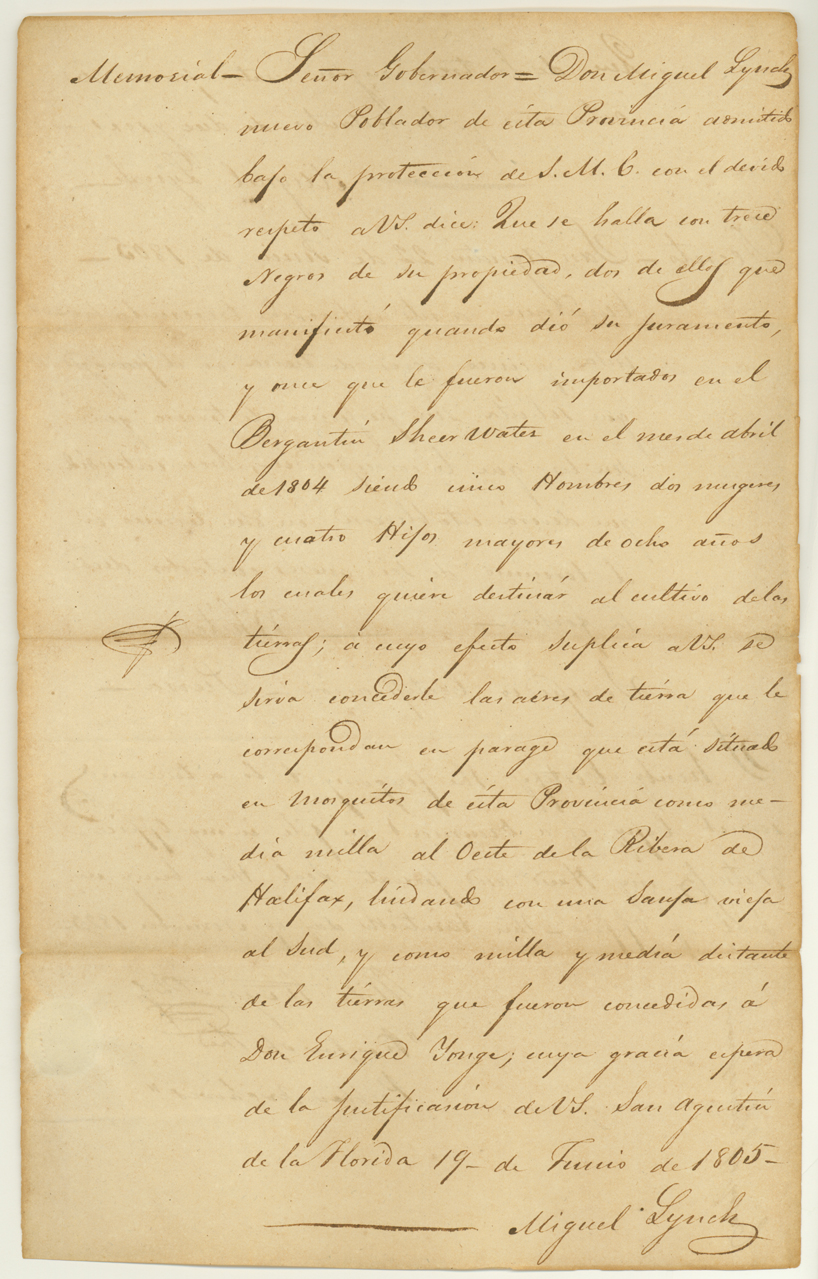 Memorial— Señor Gobernador= Don Miguel Lynch
nuevo Poblador de ésta Provincia admitido
bajo la protección de S. M. C. con el devido
respeto a VS. dice: Que se halla con trece
Negros de su propiedad, dos de ellos que
manifiestó quando dió su juramento,
y once que le fueron importados en el
Bergantin Sheer Water en el mes de abril
de 1804 siendo cinco Hombres dos mugeres
y cuatro Hijos mayores de ocho años
los cuales quiere destinár al cultivo de las
tiérras; á cuyo efecto suplica a VS. se
sirva concederle las acres de tiérra que le
correspondan en parage que está situado
en Mosquitos de ésta Provincia como me-
dia milla al Oeste de la Ribera de
Halifax, lindando con una Sanja vieja
al Sud, y como milla y media distante
de las tiérras que fueron concedidas á
Don Enrique Yonge; cuya gracia espera
de la justificasión de VS. San Agustin
de la Florida 19- de Junio de 1805-
Miguel Lynch